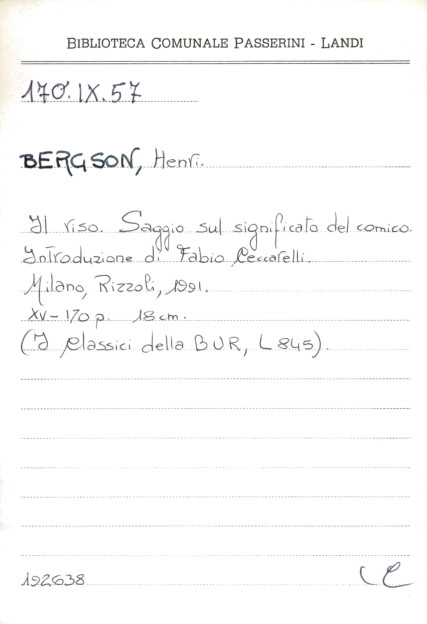 BIBLIOTECA COMUNALE PASSERINI - LANDI
170.IX.57
BERGSON, Henri.
Il riso. Saggio sul significato del comico.
Introduzione di Fabio Ceccarelli.
Milano, Rizzoli, 1991.
XV-170 p. 18 cm.
(I Classici della BUR, L 845).
192638